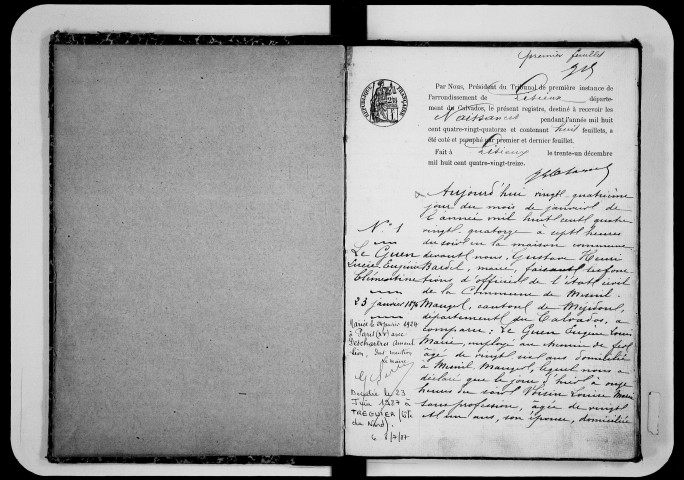 premier feuillet
RÉPUBLIQUE FRANÇAISE
Par Nous, Président du Tribunal de première instance de
l'arrondissement de Lisieux départe-
ment du Calvados, le présent registre, destiné à recevoir les
Naissances pendant l'année mil huit
cent quatre-vingt-quatorze et contenant huit feuillets, a
été coté et paraphé par premier et dernier feuillet.
Fait à Lisieux le trente-un décembre
mil huit cent quatre-vingt-treize.
Aujourd'hui vingt-quatrième
jour du mois de janvier de
l'année mil huit cent quatre
vingt-quatorze à sept heures
du soir en la maison commune
devant nous, Gustave Henri
Bardel, maire, faisant les fonc
tions d'officier de l'état civil
de la Commune de Mesnil-
Mauger, canton de Mézidon,
département du Calvados, a
comparu, Le Guen Eugène Louis
Marie, employé au chemin de fer
âgé de vingt neuf ans, domicilié
à Mesnil Mauger, lequel nous a
déclaré que le jour d'hier à onze
heures du soir Louise Marie
sans profession, âgée de vingt
ans, son épouse, domiciliée
N° 1
Le Guen
Lucie Eugénie
Clémentine
23 janvier 1894
Mariée le janvier 1924
à Paris avec
Deschartres
tion, Dont mention
Le maire
Décédée le 23
Juin 1987 à
TREGUIER (Côtes
du Nord).
6/7/87